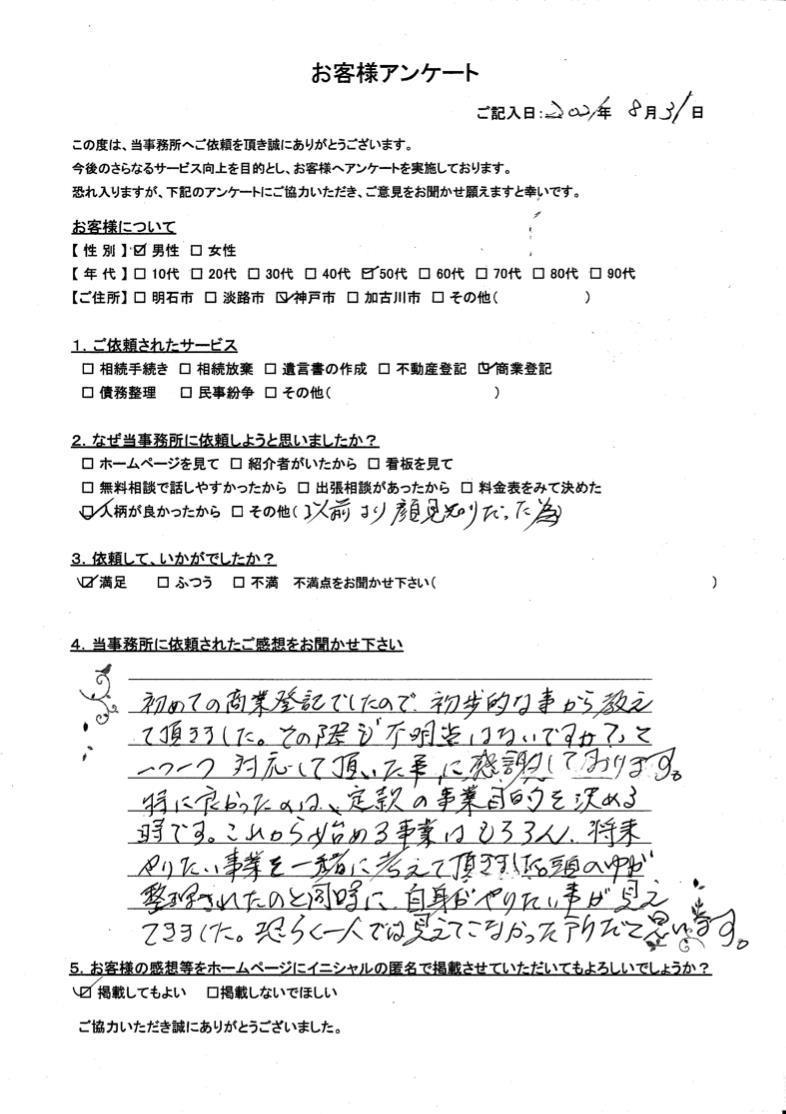 お客様アンケート
ご記入日:2021年 8月31日
この度は、当事務所へご依頼を頂き誠にありがとうございます。
今後のさらなるサービス向上を目的とし、お客様へアンケートを実施しております。
恐れ入りますが、下記のアンケートにご協力いただき、ご意見をお聞かせ願えますと幸いです。
お客様について
【 性 別 】☑ 男性 □ 女性
【 年 代 】□ 10代 □ 20代 □ 30代 □ 40代 ☑ 50代 □ 60代 □ 70代 □ 80代 □ 90代
【ご住所】□ 明石市 □ 淡路市 ☑ 神戸市 □ 加古川市 □ その他( )
1. ご依頼されたサービス
□ 相続手続き □ 相続放棄 □ 遺言書の作成 □ 不動産登記 ☑ 商業登記
□ 債務整理 □ 民事紛争 □ その他( )
2. なぜ当事務所に依頼しようと思いましたか?
□ ホームページを見て □ 紹介者がいたから □ 看板を見て
□ 無料相談で話しやすかったから □ 出張相談があったから □ 料金表をみて決めた
☑ 人柄が良かったから □ その他( 以前より顔見知りだった為)
3. 依頼して、いかがでしたか?
☑ 満足 □ ふつう □ 不満 不満点をお聞かせ下さい( )
4. 当事務所に依頼されたご感想をお聞かせ下さい
初めての商業登記でしたので、初歩的な事から教え
て頂きました。その際も不明点はないですか?って
一つ一つ対応して頂いた事に感謝しております。
特に良かったのは、定款の事業目的を決める
時です。これから始める事業はもちろん、将来
やりたい事業を一緒に考えて頂きました。頭の中が
整理されたのと同時に、自身がやりたい事が見え
てきました。恐らく一人では見えてこなかった
思います。
5. お客様の感想等をホームページにイニシャルの匿名で掲載させていただいてもよろしいでしょうか?
☑ 掲載してもよい □掲載しないでほしい
ご協力いただき誠にありがとうございました。